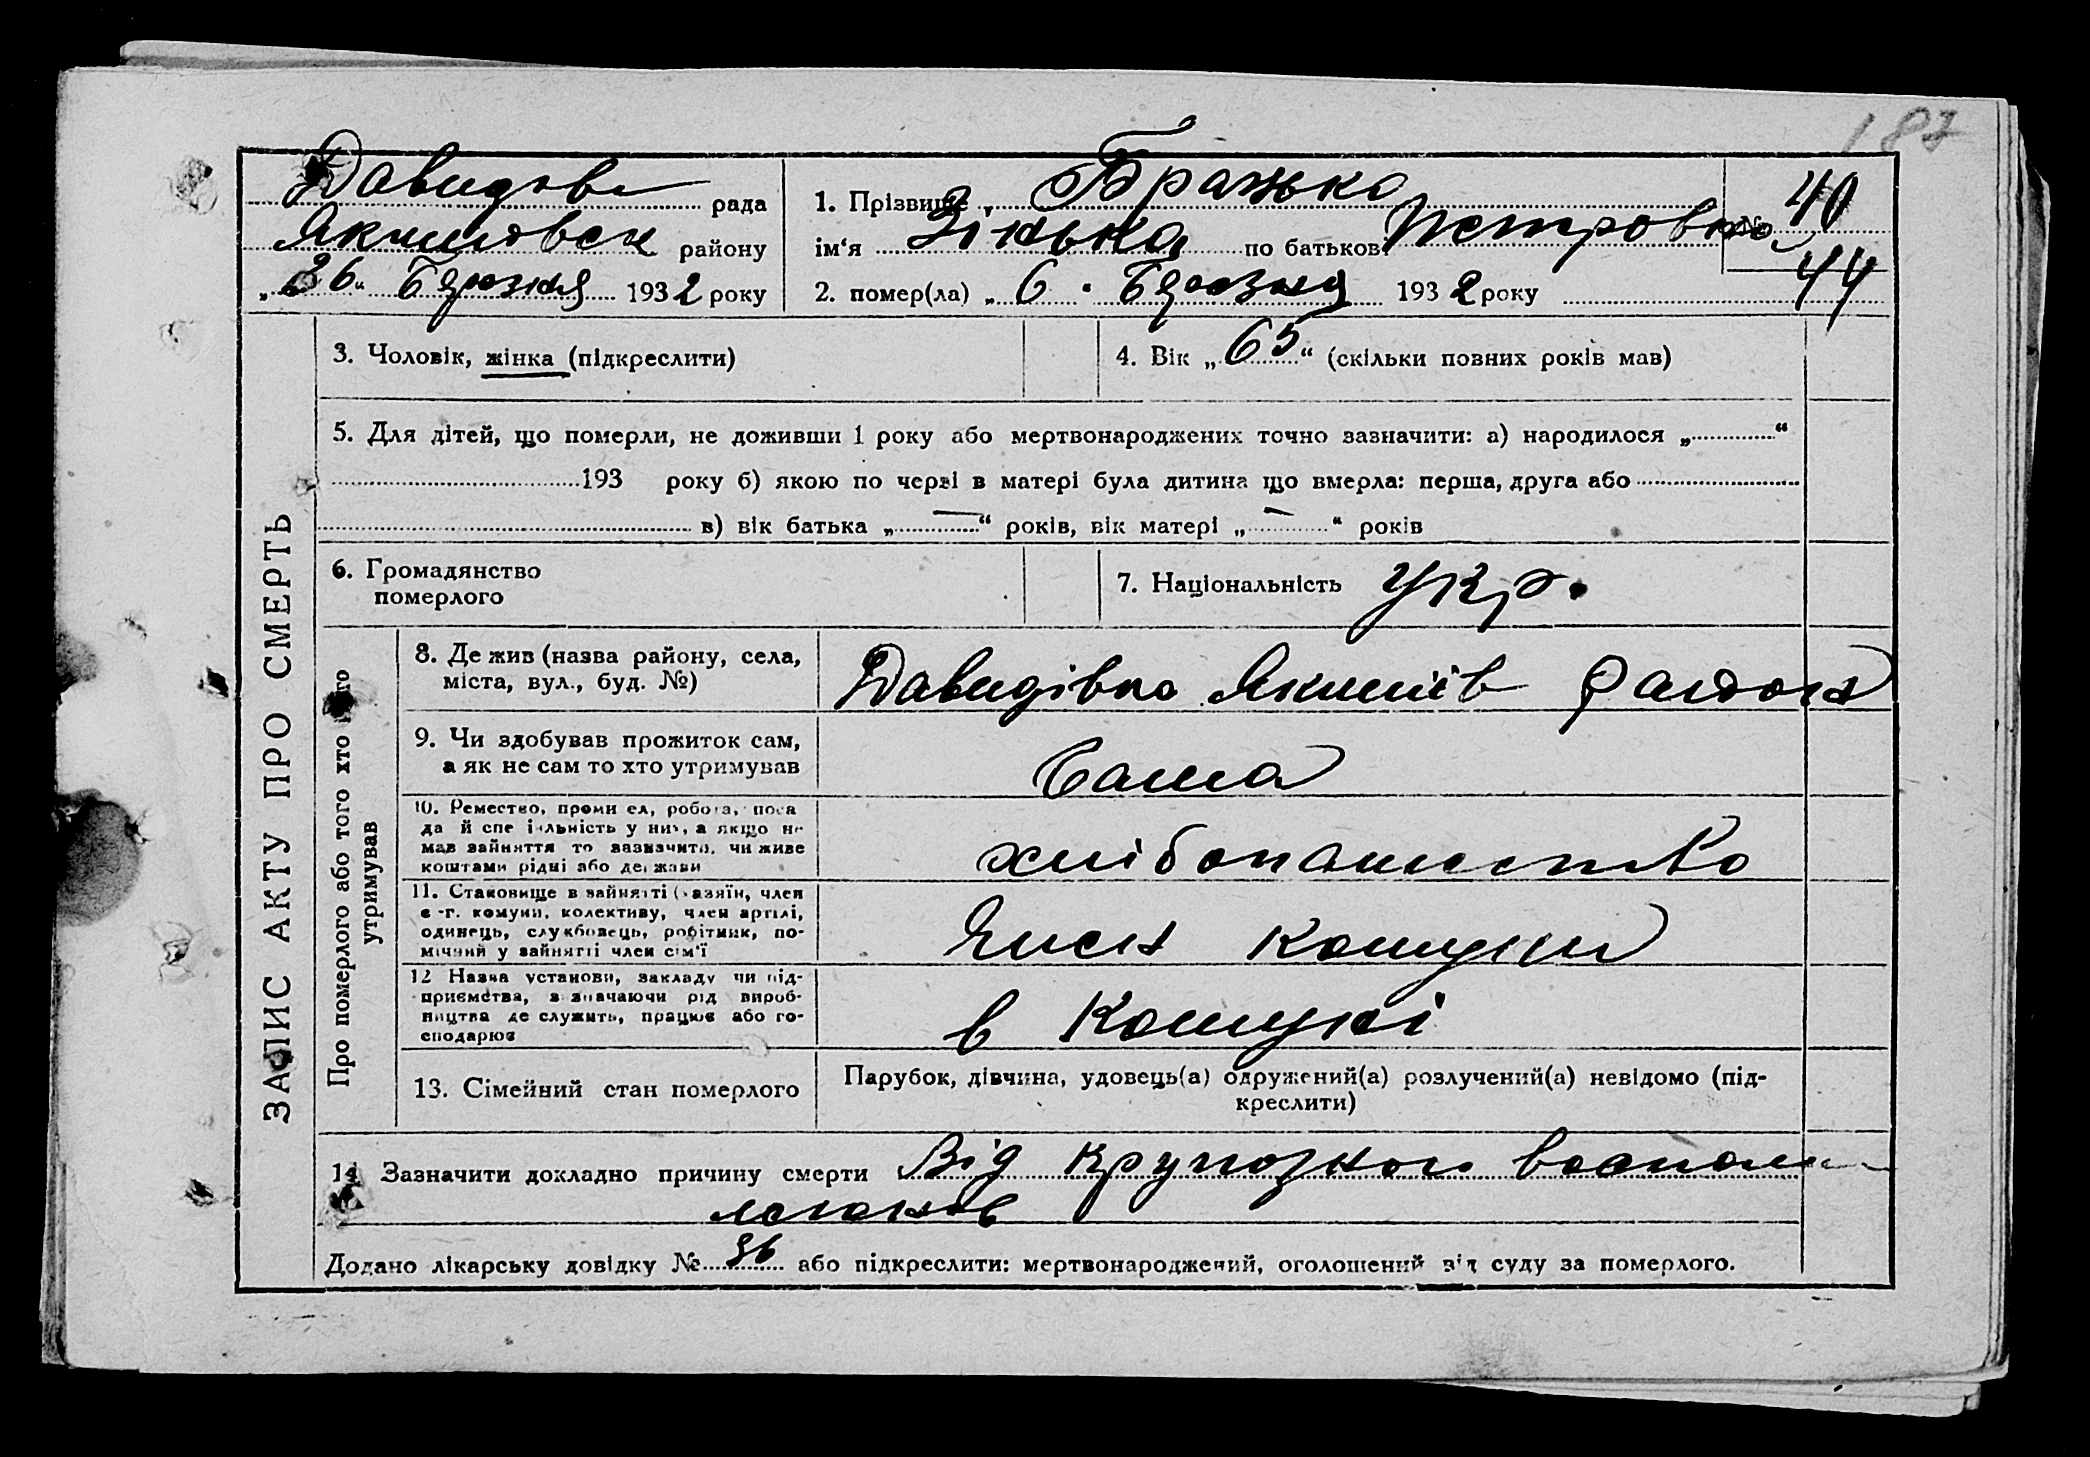 187
Давидов рада
Якимовськ району
„26“ Березня 1932 року
1. Прізвище Бражко
ім‘я Зінька по батькові Петровна
2. помер(ла) „6“ Березня 1932 року
40
44
ЗАПИС АКТУ ПРО СМЕРТЬ
3. Чоловік, жінка (підкреслити)
4. Вік „65“ (скільки повних років мав)
5. Для дітей, що померли, не доживши 1 року або мертвонароджених точно зазначити: а) народилося „ “
193 року б) якою по черзі в матері була дитина що вмерла: перша, друга або
в) вік батька „—“ років, вік матері „—“ років
6. Громадянство
померлого
7. Національність укр.
Про померлого або того хто його
утримував
8. Де жив (назва району, села,
міста, вул., буд. №)
Давидівка Якимів району
9. Чи здобував прожиток сам,
а як не сам то хто утримував
Сама
10. Ремество, промисел, робота, поса
да й спеціяльність у них, а якщо не
мав зайняття то зазначити, чи живе
коштами рідні або держави
хлібопашество
11. Становище в зайнятті (хазяїн, член
с.-г. комуни, колективу, член артілі,
одинець, службовець, робітник, по-
мічний у зайнятті член сім‘ї
Член комуни
12 Назва установи, закладу чи під-
приємства, зазначаючи рід вироб-
ництва де служить, працює або го-
сподарює
в Комуні
13. Сімейний стан померлого
Парубок, дівчина, удовець(а) одружений(а) розлучений(а) невідомо (під-
креслити)
14 Зазначити докладно причину смерти Від крупозного воспален
легких
Додано лікарську довідку № 36 або підкреслити: мертвонароджений, оголошений від суду за померлого.